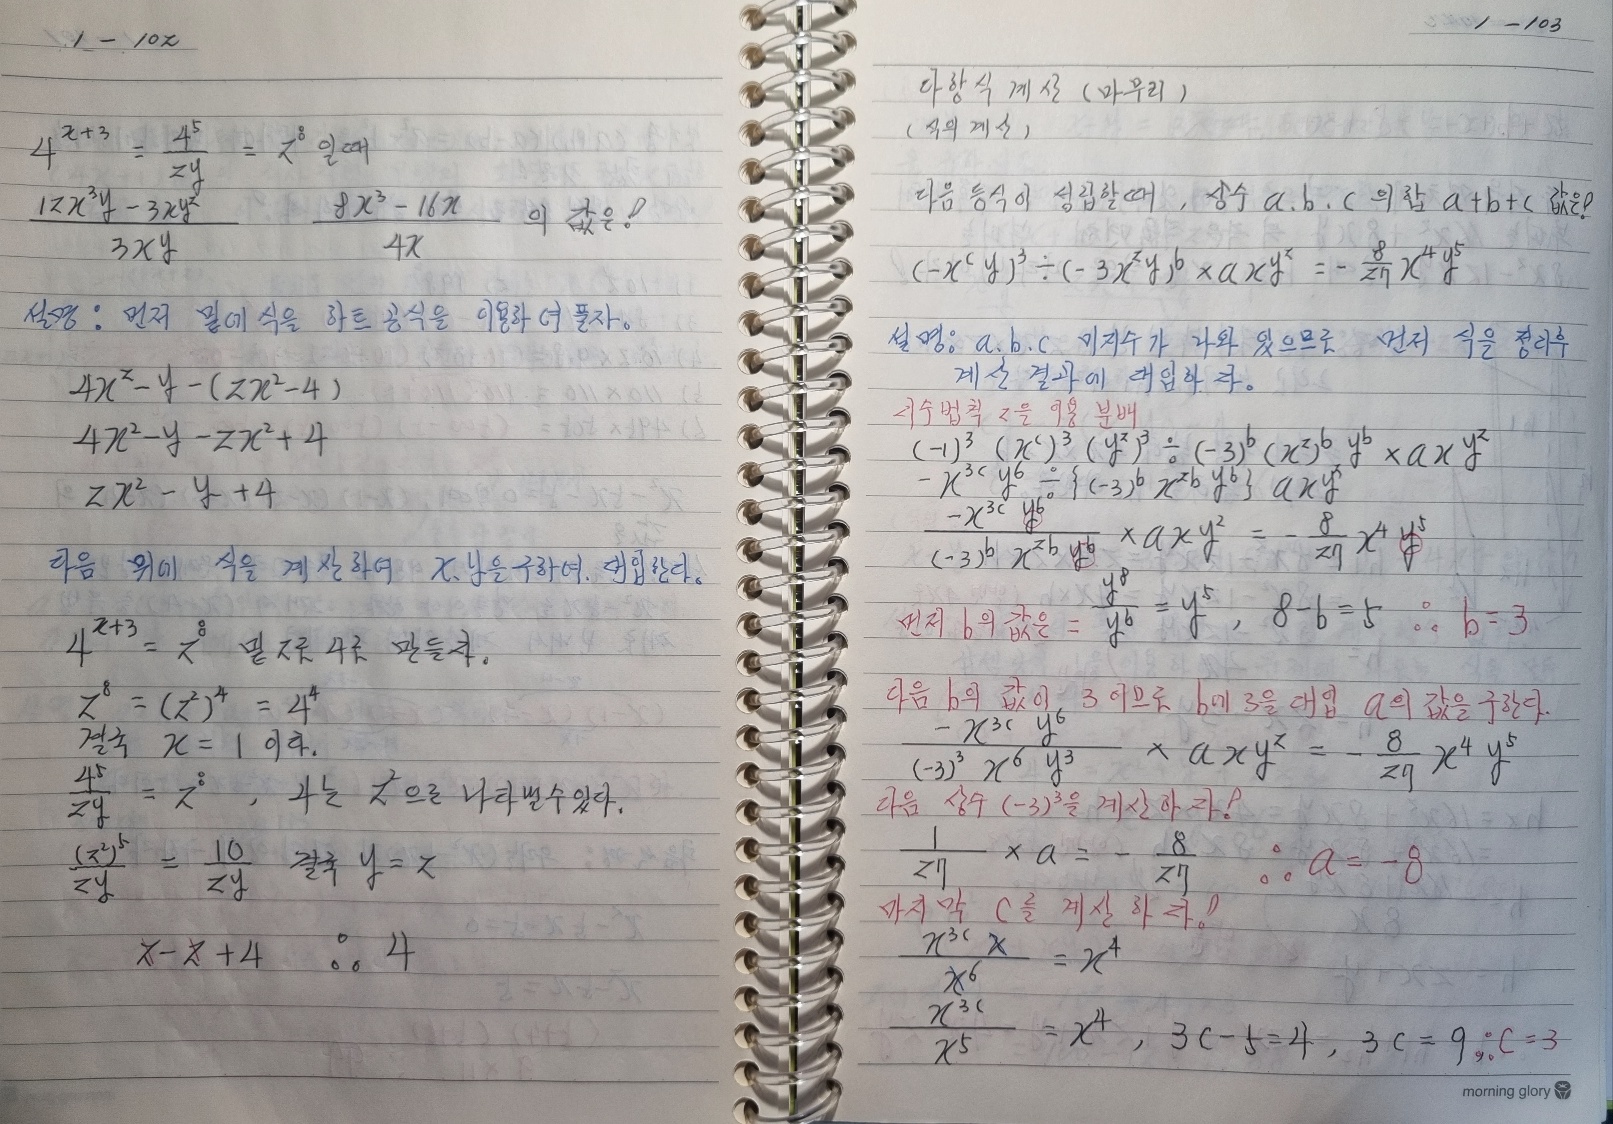 1 - 102
4^(x+3) = 4^5/2^y = 2^8 일때
(12x^3y - 3xy^2)/3xy (8x^3 - 16x)/4x 의 값은?
설명 : 먼저 밑에 식을 하트 공식을 이용하여 풀자.
4x^2 - y - (2x^2 - 4)
4x^2 - y - 2x^2 + 4
2x^2 - y + 4
다음 위에 식을 계산하여 x, y을 구하여. 대입한다.
4^(x+3) = 2^8 밑 2로 4로 만들자.
2^8 = (2^2)^4 = 4^4
결국 x = 1 이다.
4^5/2^y = 2^8 , 4는 2^2으로 나타낼수있다.
(2^2)^5/2^y = 10/2^y 결국 y = 2
2 - 2 + 4 ∴ 4
1 - 103
다항식 계산 (마무리)
(식의 계산)
다음 등식이 성립할때, 상수 a.b.c 의 합 a+b+c 값은?
(-x^c y)^3 ÷ (-3x^2y)^b × axy^2 = - 8/27 x^4y^5
설명: a.b.c 미지수가 나와 있으므로 먼저 식을 정리후
계산 결과에 대입하자.
지수법칙 2을 이용 분배
(-1)^3 (x^c)^3 (y^2)^3 ÷ (-3)^b (x^2)^b y^b × axy^2
-x^3c y^6 ÷ {(-3)^b x^2b y^b} axy^2
-x^3c y^6/(-3)^b x^2b y^b × axy^2 = - 8/27 x^4 y^5
먼저 b의 값은 = y^8/y^b = y^5 , 8-b=5 ∴ b=3
다음 b의 값이 3 이므로 b에 3을 대입 a의 값을 구한다.
-x^3c y^6/(-3)^3 x^6 y^3 × axy^2 = - 8/27 x^4 y^5
다음 상수 (-3)^3을 계산하자!
1/27 × a = - 8/27 ∴ a = -8
마지막 c를 계산하자!
x^3c x/x^6 = x^4
x^3c/x^5 = x^4 , 3c-5=4 , 3c = 9 ∴ c=3
morning glory